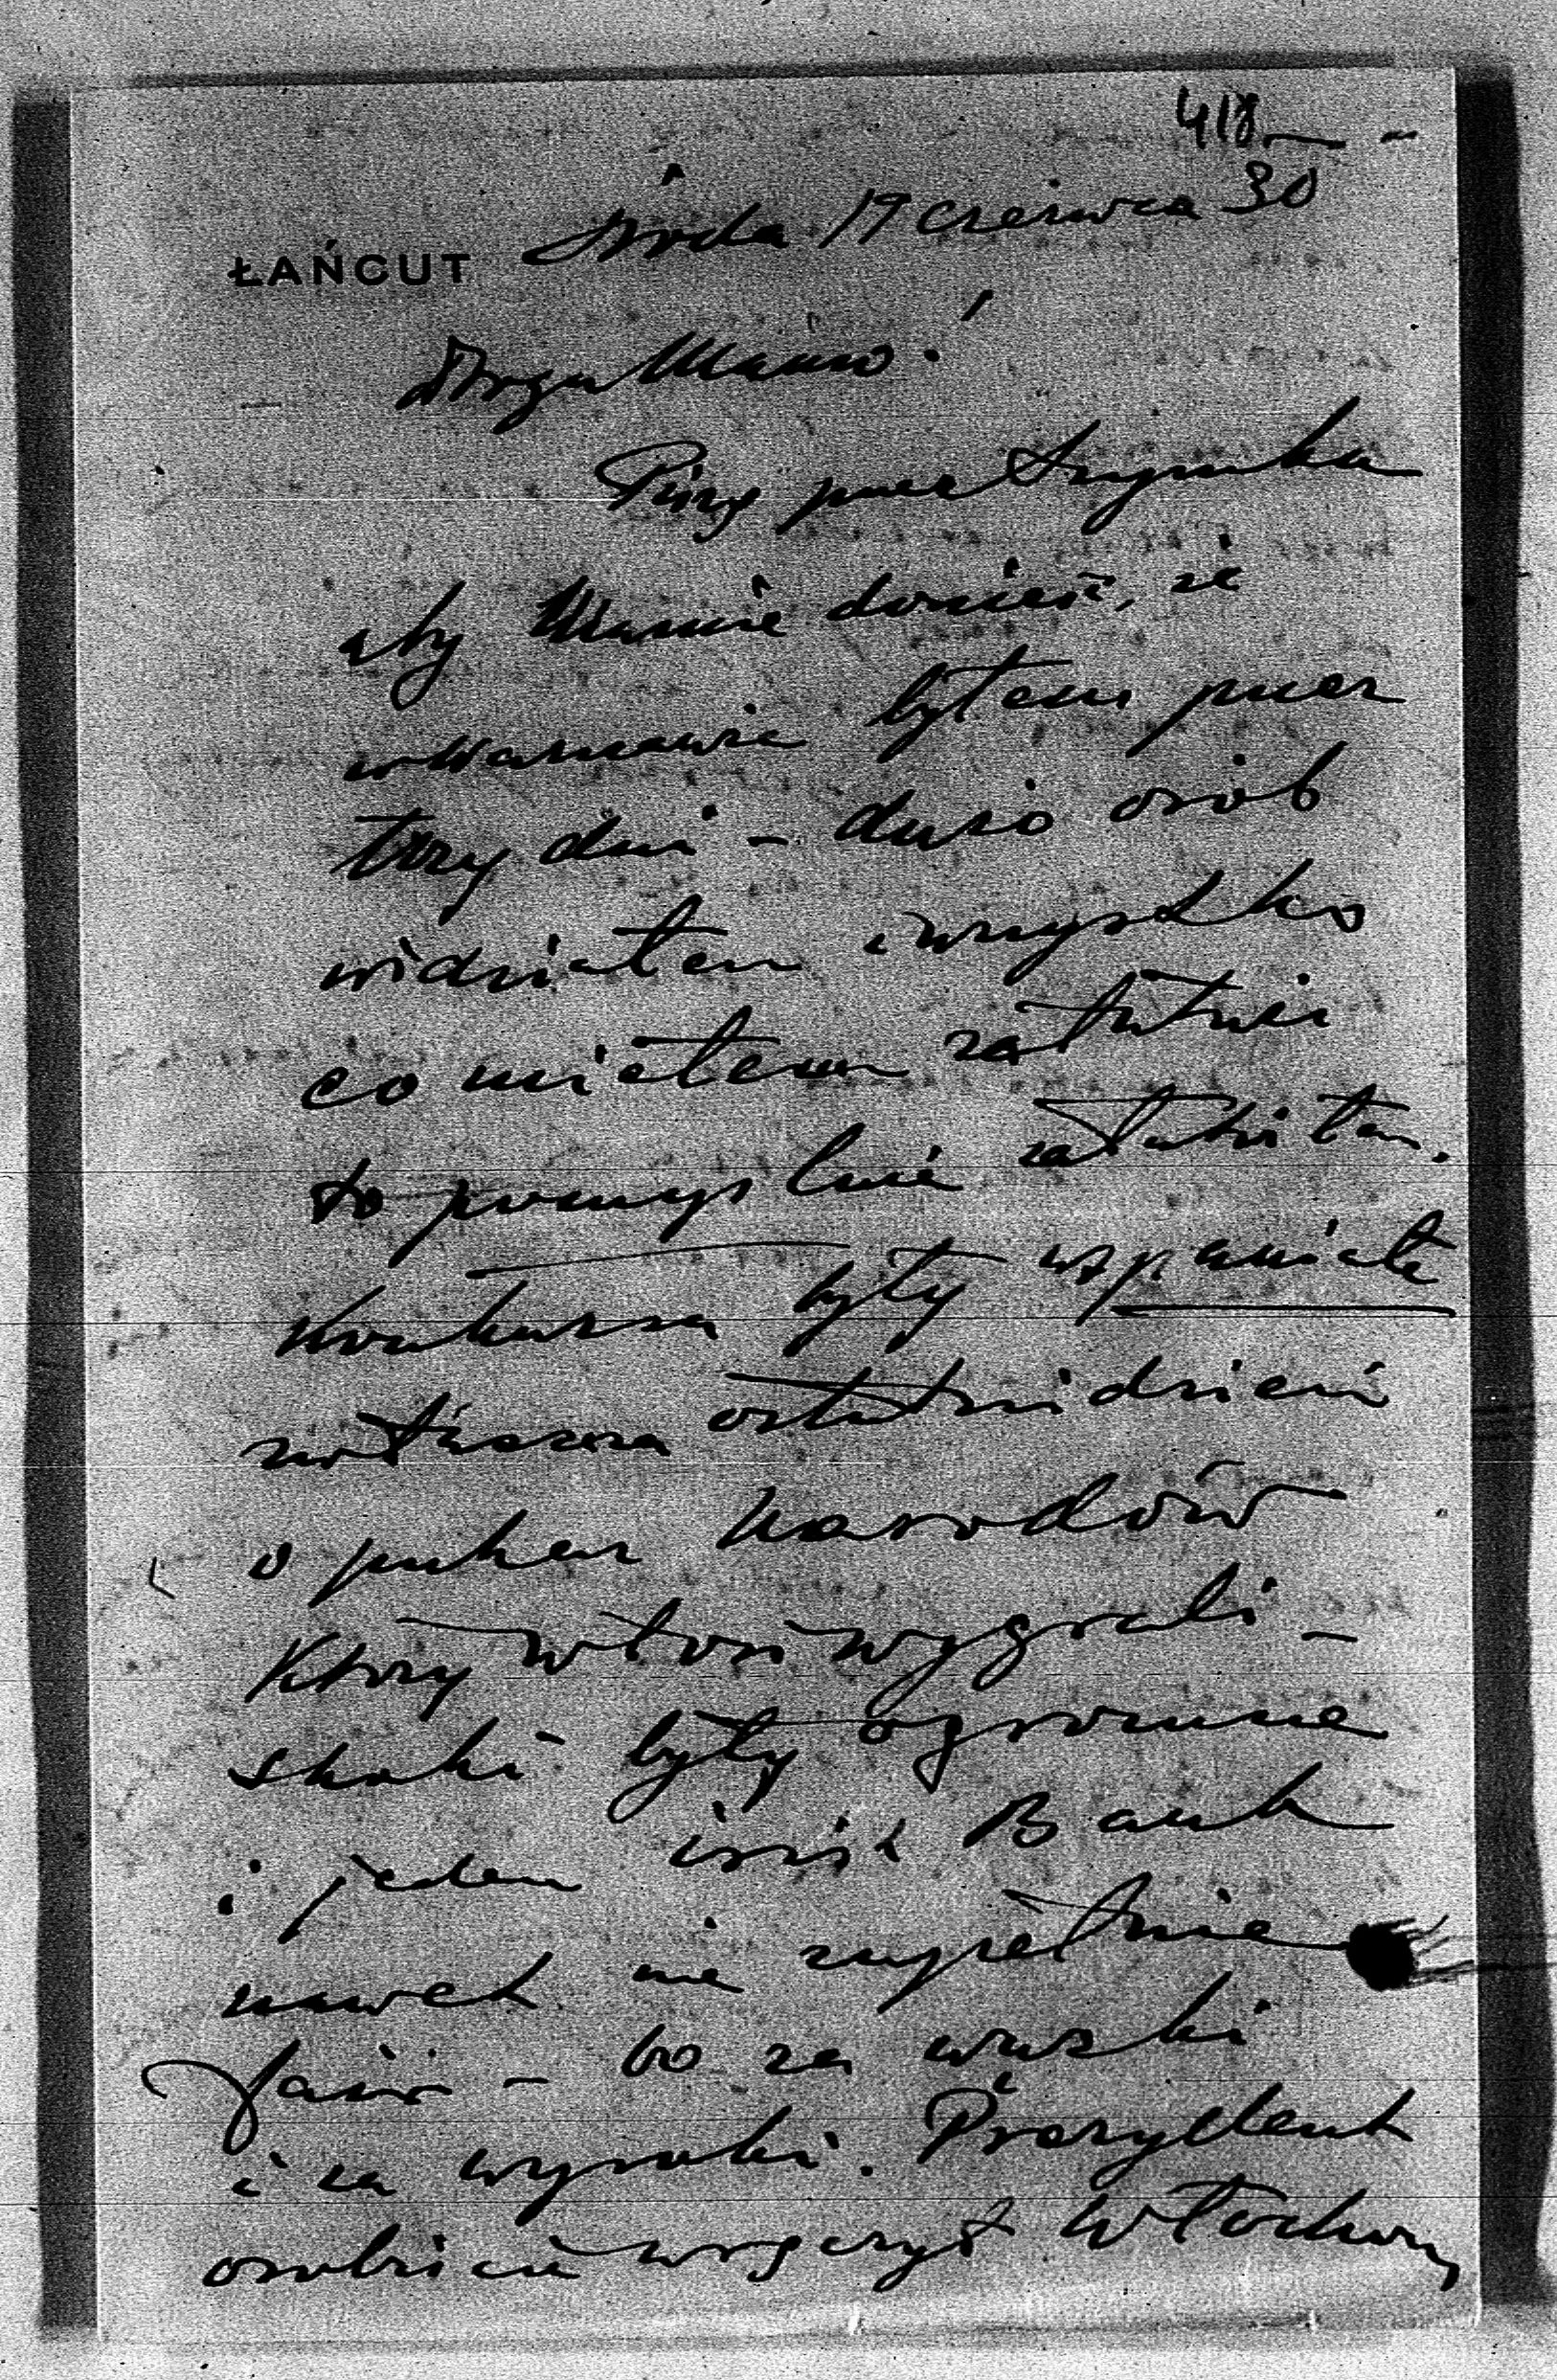 418 —
ŁAŃCUT Środa 19 czerwca 30
Droga Mamo!
Piszę przez
aby Mamie donieść, że
w Warszawie byłem przez
trzy dni – dużo osób
widziałem i wszystko
co miałem załatwić
to pomyślnie załatwiłem.
Konkursa były wspaniałe
zwłaszcza ostatni dzień
o puhar Narodów
który Włosi wygrali –
skoki były ogromne
i jeden Bank
nawet nie zupełnie
fair – bo za wązki
i za wysoki. Prezydent
osobiście wręczył Włochom